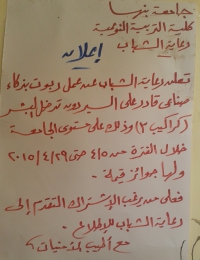 جامعة بنها
كلية التربية النوعية
رعاية الشباب
إعلان
تعلن رعاية الشباب عن عمل روبوت بذكاء
صناعى قادر على السير دون تدخل لبشر
(كراكيب ٢) وذلك على مستوى الجامعة
خلال الفترة من ٤/٥ حتى ٢٠١٥/٤/٢٩
ولها جوائز قيمة.
فعلى من يرغب الإشتراك التقدم إلى
رعاية الشباب للإطلاع.
مع أطيب الأمنيات